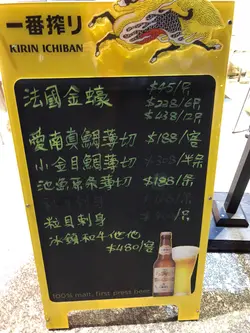 一番搾り
KIRIN ICHIBAN
法國金蠔 $45/只
$228/6只
$438/12只
愛南真鯛薄切 $188/客
小金目鯛薄切
池魚原条薄切 $188/条
粒貝刺身
冰鎮和牛他他
$480/客
100% malt, first press beer.